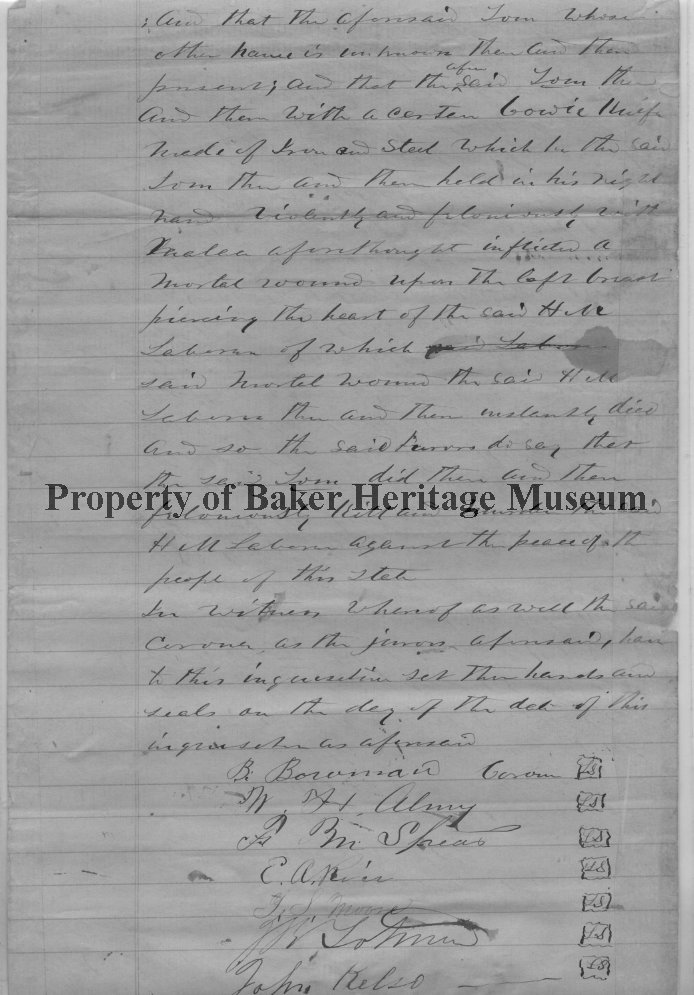 ; And that the aforesaid Tom whose
other name is unknown then and then
present; and that the afore said Tom then
And then with a certen bowie knife
made of Iron and Steel which he the said
Tom then and then held in his right
hand violently and feloniously with
malice aforethought inflicted a
mortal wound upon the left breast
piercing the heart of the said H M
Laborn of which said Labor
said mortal wound the said H M
Laborn then and then instantly died
And so the said Jurors do say that
the said Tom did then and then
feloniously kill and murder the said
H M Laborn against the peace of the
people of this State
In witness whereof as well the said
Coroner as the jurors aforesaid, have
to this inquisition set their hands and
seals on the day of the date of this
inquisition as aforesaid
Property of Baker Heritage Museum
B. Bowman Coroner LS
W. H. Almy LS
LS
E. A. LS
LS
LS
John Kelso LS